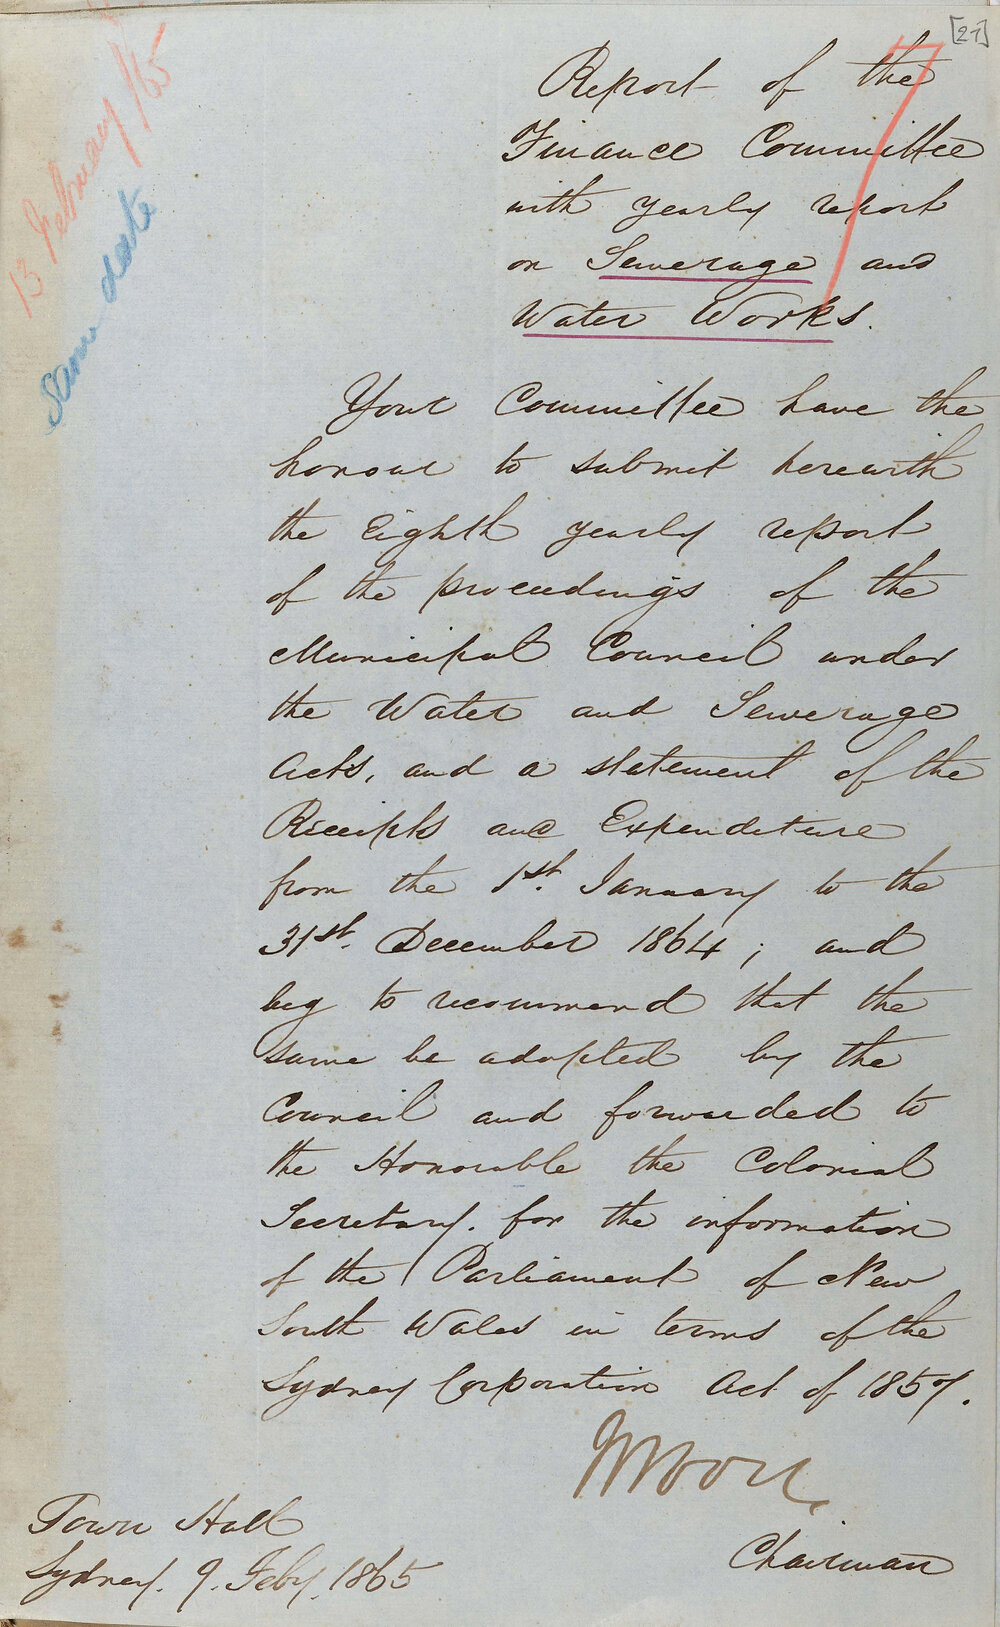 [27]
13 February /65
Same date
7
Report of the
Finance Committee
with yearly report
on Sewerage and
Water Works.
Your Committee have the
honour to submit herewith
the Eighth yearly report
of the proceedings of the
Municipal Council under
the Water and Sewerage
Acts, and a statement of the
Receipts and Expenditure
from the 1st. January to the
31st. December 1864; and
beg to recommend that the
same be adopted by the
Council and forwarded to
the Honorable the Colonial
Secretary. for the information
of the Parliament of New
South Wales in terms of the
Sydney Corporation Act of 1857.
Chairman
Town Hall
Sydney. 9. Feby. 1865